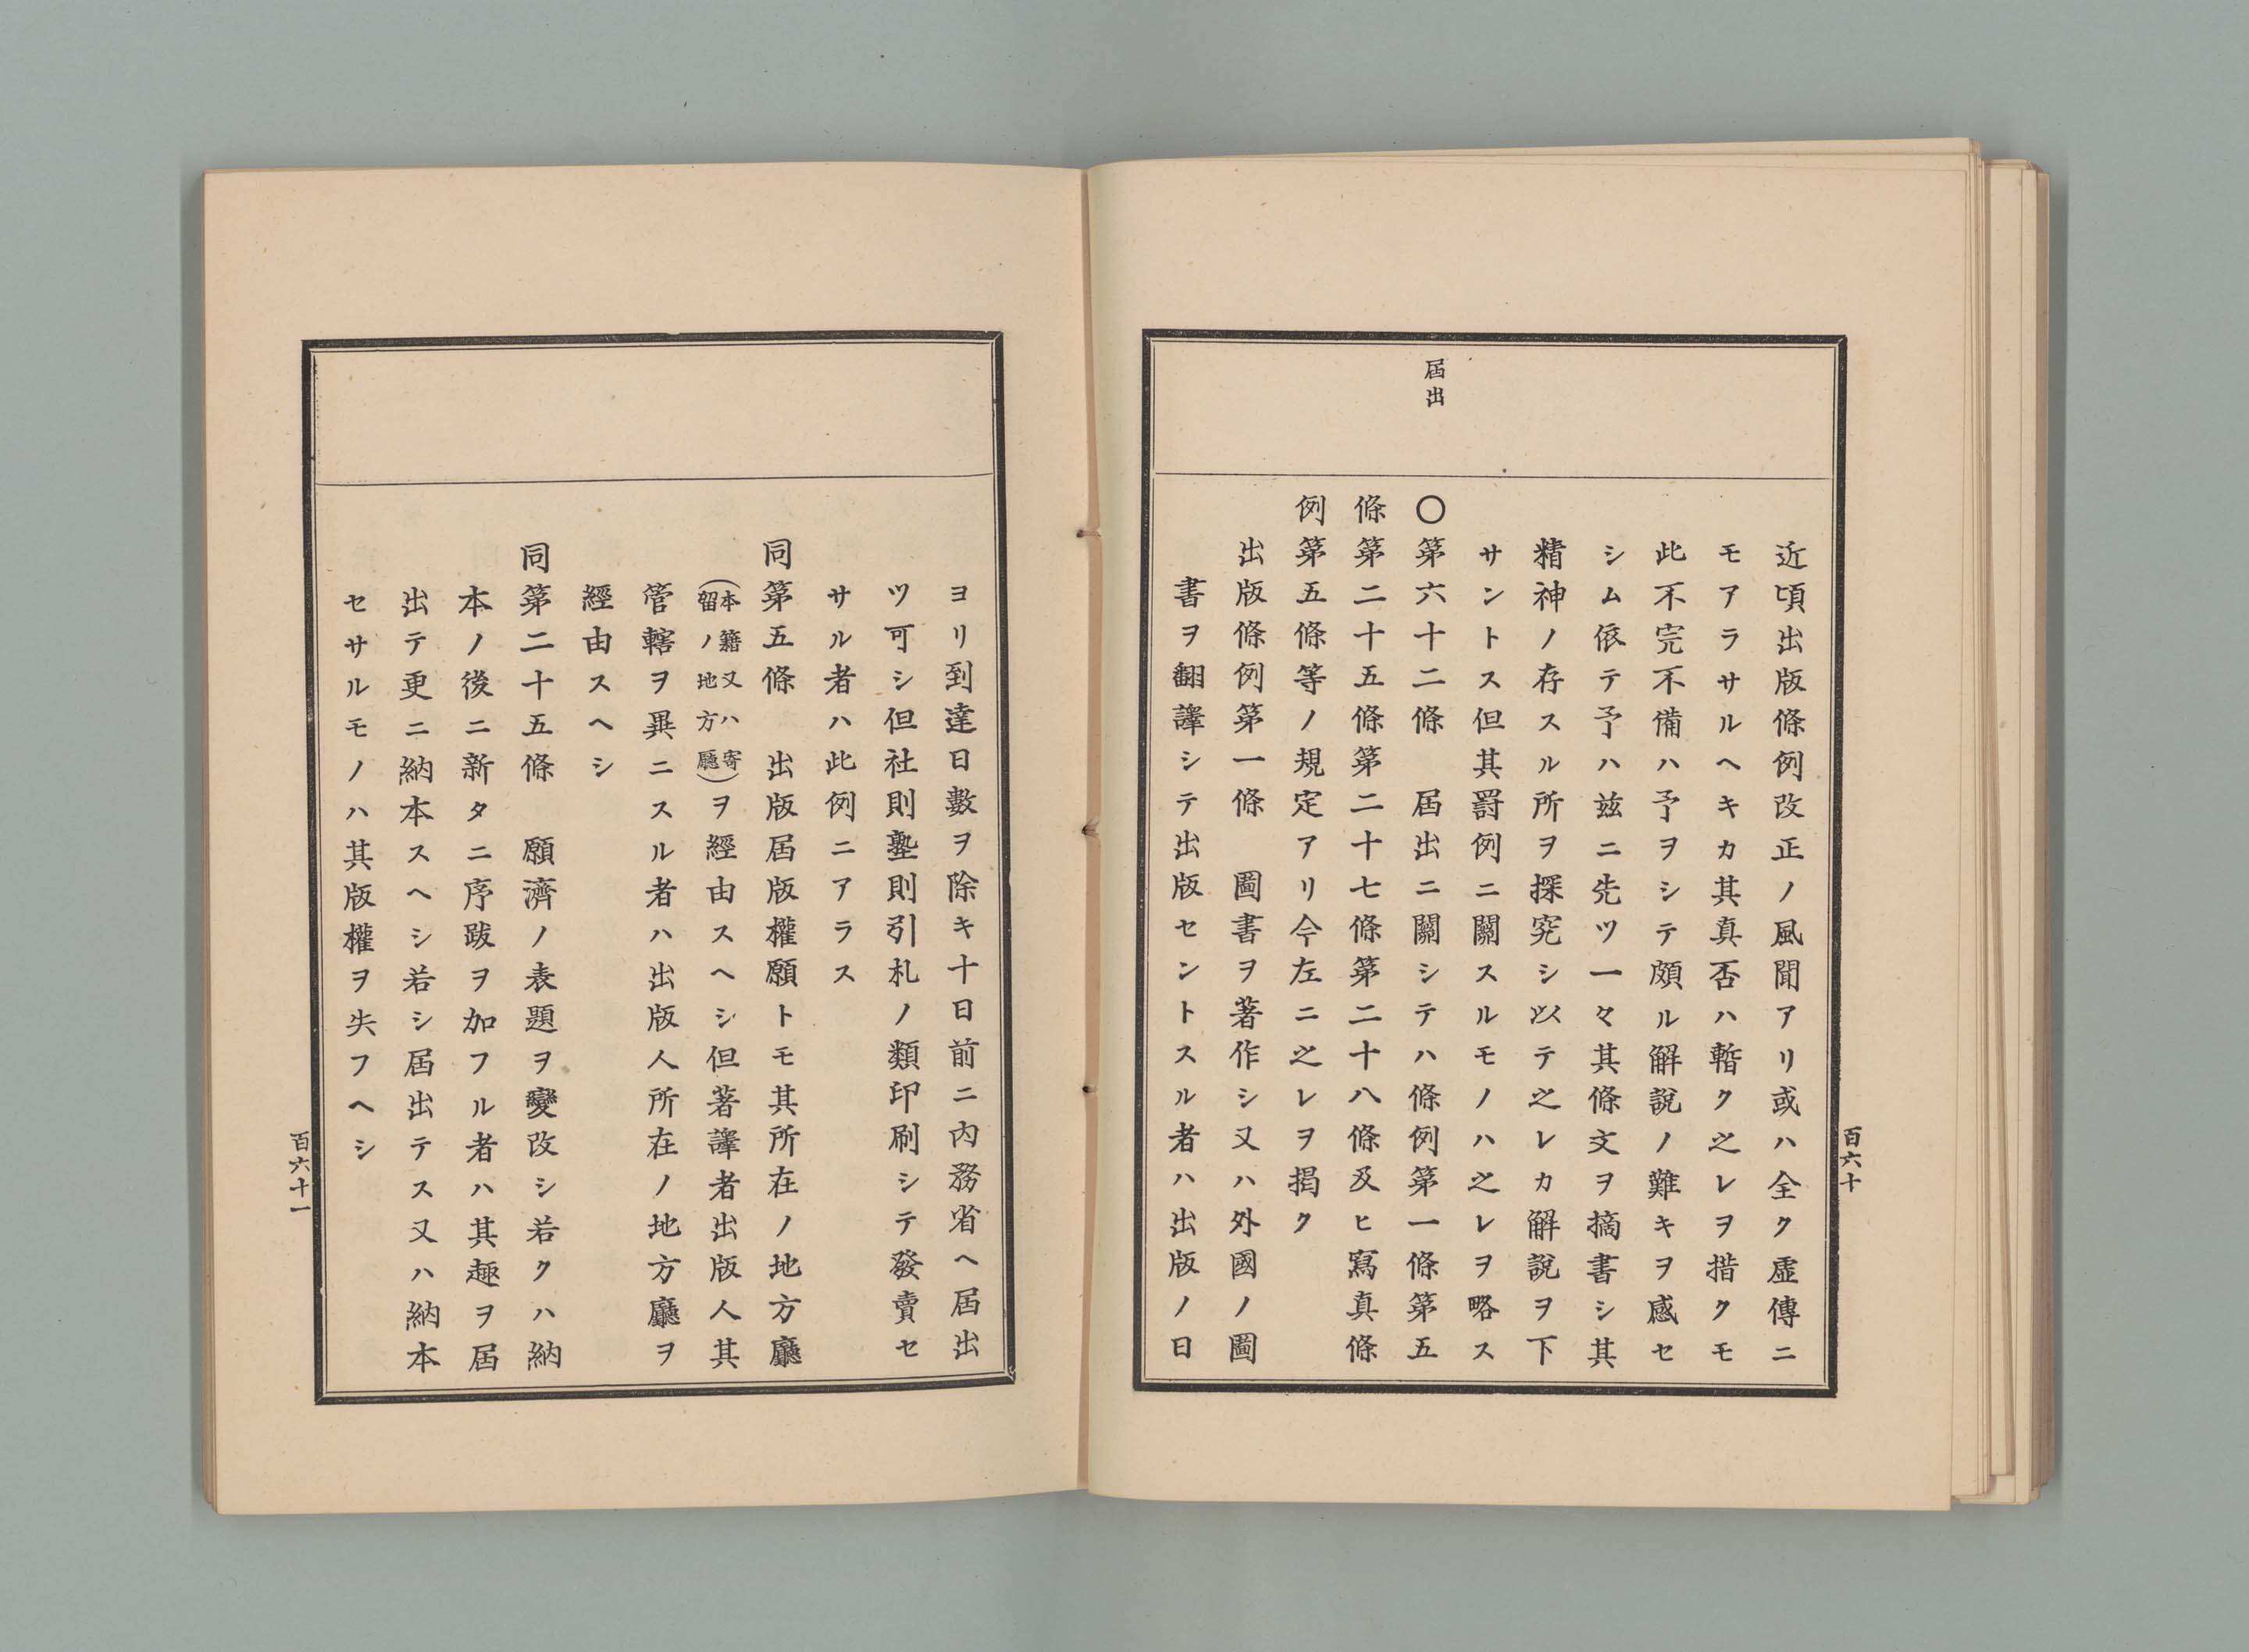 届出
近頃出版條例改正ノ風聞アリ或ハ全ク虛傳ニ
モアラサルヘキカ其真否ハ暫ク之レヲ措クモ
此不完不備ハ予ヲシテ頗ル解說ノ難キヲ感セ
シム依テ予ハ茲ニ先ツ一々其條文ヲ摘書シ其
精神ノ存スル所ヲ探究シ以テ之レカ解說ヲ下
サントス但其罸例ニ關スルモノハ之レヲ略ス
〇第六十二條　届出ニ關シテハ條例第一條第五
條第二十五條第二十七條第二十八條及ヒ寫真條
例第五條等ノ規定アリ今左ニ之レヲ揭ク
出版條例第一條　圖書ヲ著作シ又ハ外國ノ圖
書ヲ翻譯シテ出版セントスル者ハ出版ノ日
百六十
ヨリ到達日數ヲ除キ十日前ニ內務省ヘ届出
ツ可シ但社則塾則引札ノ類印刷シテ發賣セ
サル者ハ此例ニアラス
同第五條　出版届版權願トモ其所在ノ地方廳
（本籍又ハ寄留ノ地方廳）ヲ經由スヘシ但著譯者出版人其
管轄ヲ異ニスル者ハ出版人所在ノ地方廳ヲ
經由スヘシ
同第二十五條　願濟ノ表題ヲ變改シ若クハ納
本ノ後ニ新タニ序跋ヲ加フル者ハ其趣ヲ届
出テ更ニ納本スヘシ若シ届出テス又ハ納本
セサルモノハ其版權ヲ失フヘシ
百六十一